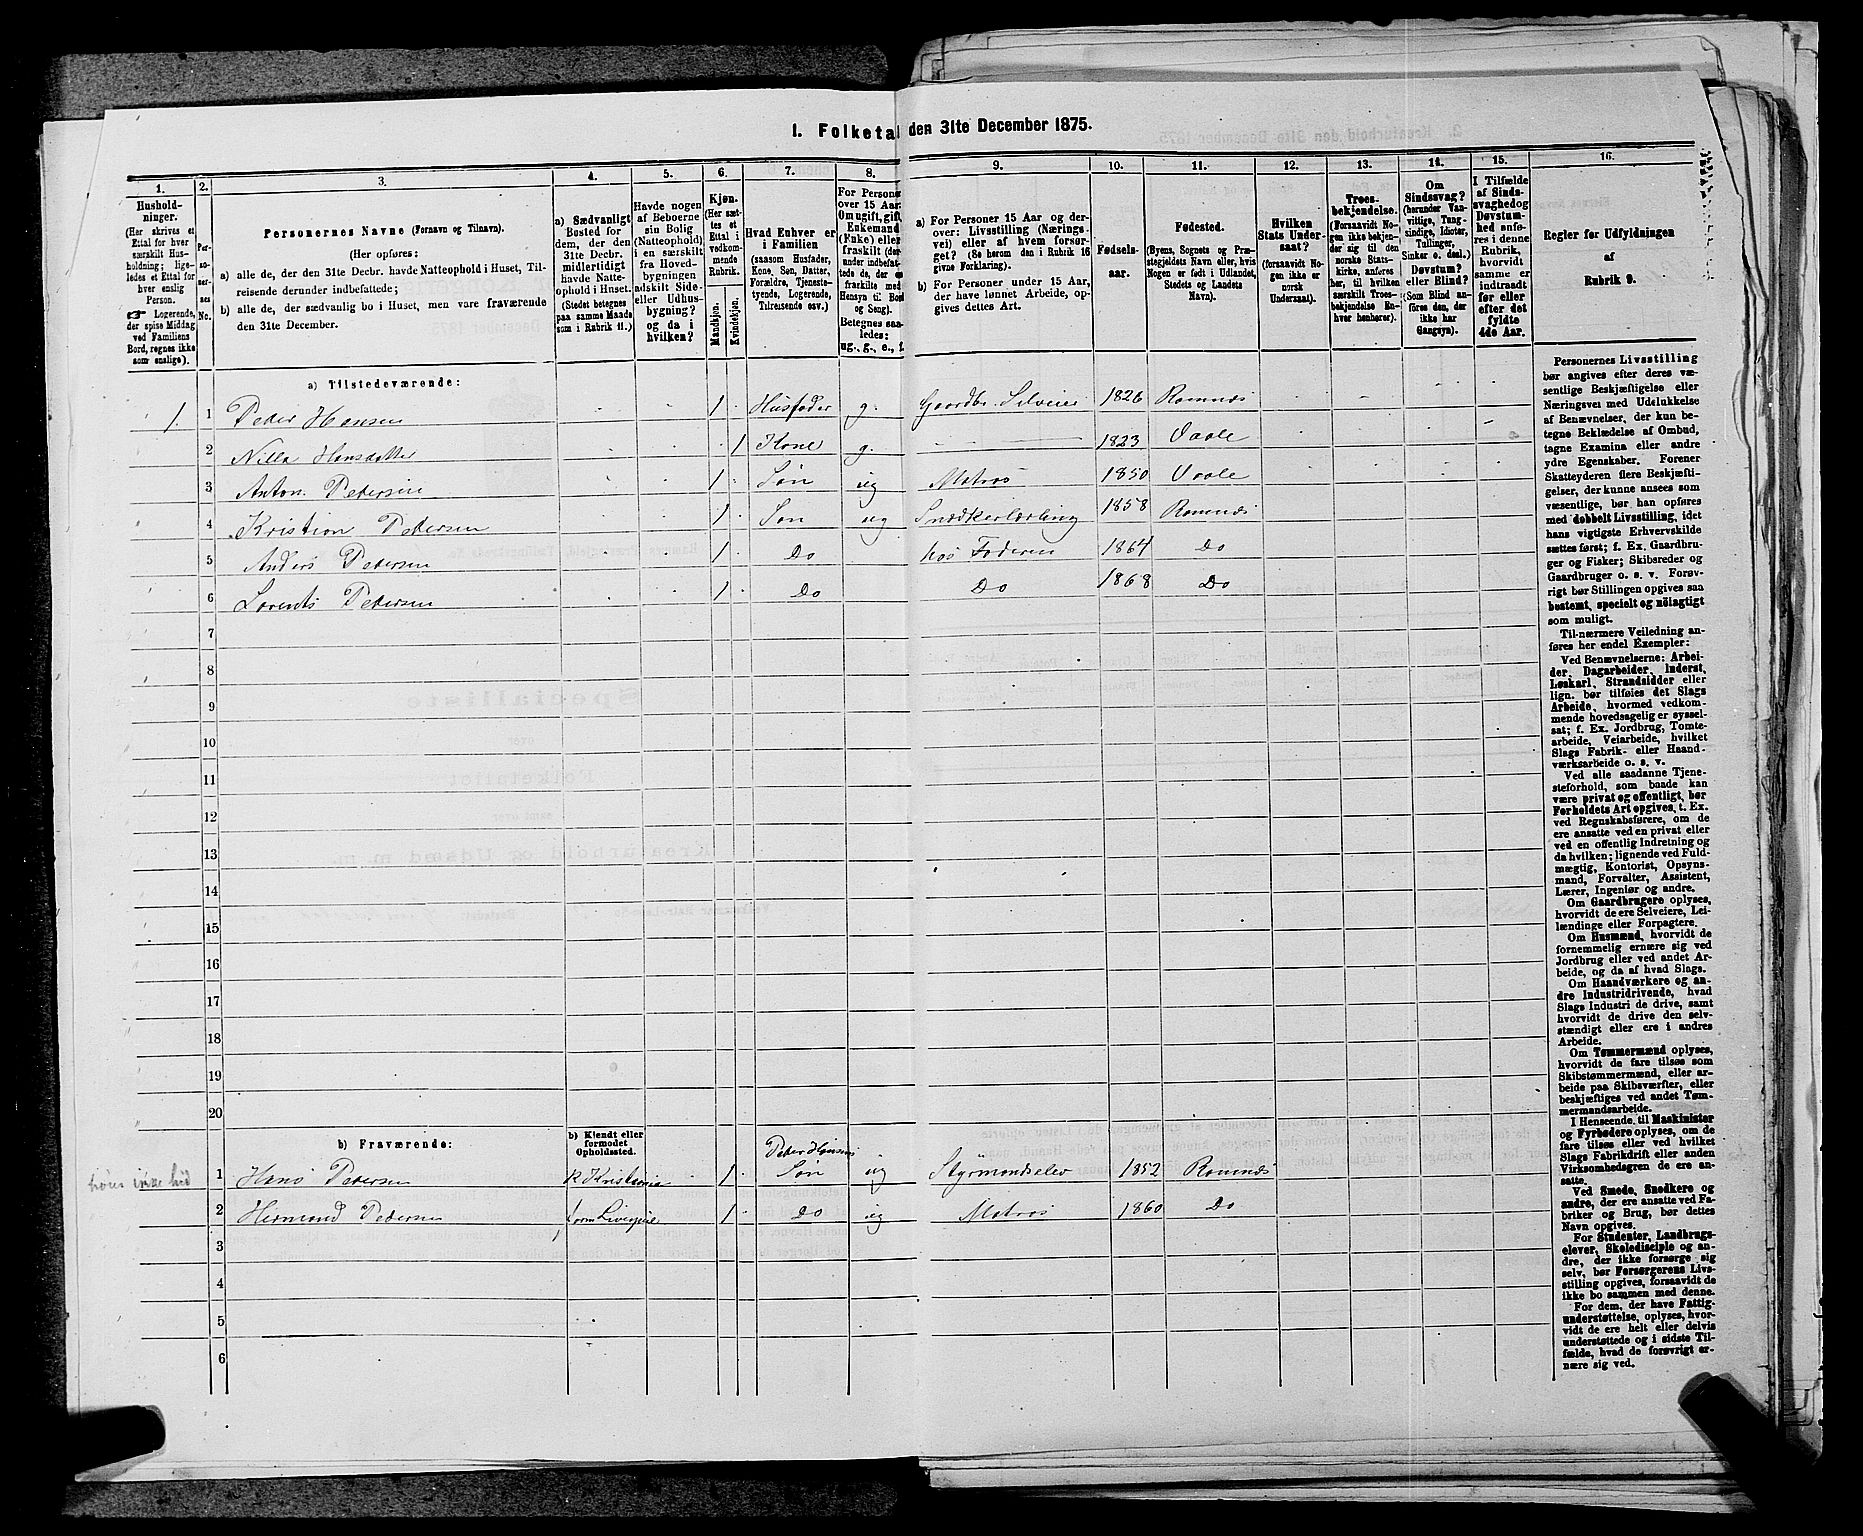 1. Folketal den 31te December 1875.
1. 2. 3. 4. 5. 6. 7. 8. 9. 10. 11. 12. 13. 14. 15. 16.
Hushold-
ninger.
(Her skrives et
Ettal for hver
særskilt Hus-
holdning; lige-
ledes et Ettal for
hver enslig
Person.
☞ Logerende,
der spise Middag
ved Familiens
Bord, regnes ikke
som enslige).
Per-
so-
ner-
nes
No.
Personernes Navne (Fornavn og Tilnavn).
(Her opføres:
a) alle de, der den 31te Decbr. havde Natteophold i Huset, Til-
reisende derunder indbefattede;
b) alle de, der sædvanlig bo i Huset, men vare fraværende
den 31te December.
a) Sædvanligt
Bosted for
dem, der den
31te Decbr.
midlertidigt
havde Natte-
ophold i Huset.
(Stedet betegnes
paa samme Maade
som i Rubrik 11.)
Havde nogen
af Beboerne
sin Bolig
(Natteophold)
i en særskilt
fra Hoved-
bygningen
adskilt Side-
eller Udhus-
bygning?
og da i
hvilken?
Kjøn.
(Her sæt-
tes et
Ettal i
vedkom-
mende
Rubrik.
Mandkjøn.
Kvindekjøn.
Hvad Enhver er
i Familien
(saasom Husfader,
Kone, Søn, Datter,
Forældre, Tjeneste-
tyende, Logerende,
Tilreisende osv.)
For Personer
over 15 Aar:
Om ugift, gift,
Enkemand
(Enke) eller
fraskilt (der-
under indbefat-
tede de, der ere
fraskilte med
Hensyn til Bord
og Seng).
Betegnes saa-
ledes:
ug., g., e., f.
a) For Personer 15 Aar og der-
over: Livsstilling (Nærings-
vei) eller af hvem forsør-
get? (Se herom den i Rubrik 16
givne Forklaring).
b) For Personer under 15 Aar,
der have lønnet Arbeide, op-
gives dettes Art.
Fødsels-
aar.
Fødested.
(Byens, Sognets og Præ-
stegjeldets Navn eller, hvis
Nogen er født i Udlandet,
Stedets og Landets
Navn).
Hvilken
Stats Under-
saat?
(forsaavidt No-
gen ikke er
norsk
Undersaat).
Troes-
bekjendelse.
(Forsaavidt No-
gen ikke bekjen-
der sig til den
norske Stats-
kirke, anføres
her, til hvilken
særskilt Troes-
bekjendelse En-
hver henhører).
Om
Sindssvag?
(herunder Van-
vittige, Tung-
sindige, Idioter,
Tullinger,
Sinker o. desl.)
Døvstum?
eller Blind?
(Som Blind an-
føres den, der
ikke har
Gangsyn).
I Tilfælde
af Sinds-
svaghed og
Døvstum-
hed anfø-
res i denne
Rubrik,
hvorvidt
samme er
indtraadt
før eller
efter det
fyldte
4de Aar.
Regler for Udfyldningen
af
Rubrik 9.
a) Tilstedeværende:
1. 1 Peder Hansen 1 Husfader g. Gaardbr. Selveier 1826 Ramnæs
2 Nilla Hansdatter 1 Kone g. 1823 Vaale
3 Anton Pedersen 1 Søn ug Matros 1850 Vaale
4 Kristian Pedersen 1 Søn ug Snedkerlærling 1858 Ramnæs
5 Anders Pedersen 1 Do hos Faderen 1864 Do
6 Lorents Pedersen 1 Do Do 1868 Do
7
8
9
10
11
12
13
14
15
16
17
18
19
20
b) Fraværende:
b) Kjendt eller
formodet
Opholdssted.
Peder Hansens
1 Hans Pedersen K Kristiania 1 Søn ug Styrmandselev 1852 Ramnæs
2 Hermand Pedersen form Liverpol 1 Do ug Matros 1860 Do
3
4
5
6
Personernes Livsstilling
bør angives efter deres væ-
sentlige Beskjæftigelse eller
Næringsvei med Udelukkelse
af Benævnelser, der kun be-
tegne Beklædelse af Ombud,
tagne Examina eller andre
ydre Egenskaber. Forener
Skatteyderen flere Beskjæfti-
gelser, der kunne ansees som
væsentlige, bør han opføres
med dobbelt Livsstilling, idet
hans vigtigste Erhvervskilde
sættes først; f. Ex. Gaardbru-
ger og Fisker; Skibsreder og
Gaardbruger o. s. v. Forøv-
rigt bør Stillingen opgives saa
bestemt, specielt og nöiagtigt
som muligt.
Til nærmere Veiledning an-
føres her endel Exempler:
Ved Benævnelserne: Arbei-
der, Dagarbeider, Inderst,
Løskarl, Strandsidder eller
lign. bør tilføies det Slags
Arbeide, hvormed vedkom-
mende hovedsagelig er syssel-
sat; f. Ex. Jordbrug, Tomte-
arbeide, Veiarbeide, hvilket
Slags Fabrik- eller Haand-
værksarbeide o. s. v.
Ved alle saadanne Tjene-
steforhold, som baade kan
være privat og offentligt, bør
Forholdets Art opgives, t. Ex.
ved Regnskabsførere, om de
ere ansatte ved en privat eller
ved en offentlig Indretning og
da hvilken; lignende ved Fuld-
mægtig, Kontorist, Opsyns-
mand, Forvalter, Assistent,
Lærer, Ingeniør og andre.
Om Gaardbrugere oplyses,
hvorvidt de ere Selveiere, Lei-
lændinge eller Forpagtere.
Om Husmænd, hvorvidt de
fornemmelig ernære sig ved
Jordbrug eller ved andet Ar-
beide, og da af hvad Slags.
Om Haandværkere og an-
dre Industridrivende, hvad
Slags Industri de drive, samt
hvorvidt de drive den selv-
stændigt eller ere i andres
Arbeide.
Om Tømmermænd oplyses,
hvorvidt de fare tilsøs som
Skibstømmermænd, eller ar-
beide paa Skibsværfter, eller
beskjæftiges ved andet Tøm-
mermandsarbeide.
I Henseende til Maskinister
og Fyrbødere oplyses, om de
fare tilsøs eller ved hvilket
Slags Fabrikdrift eller anden
Virksomhedsgren de ere an-
satte.
Ved Smede, Snedkere og
andre, der ere ansatte ved Fa-
briker og Brug, bør dettes
Navn opgives.
For Studenter, Landbrugs-
elever, Skoledisciple og an-
dre, der ikke forsørge sig
selv, bør Forsørgerens Livs-
stilling opgives, forsaavidt de
ikke bo sammen med denne.
For dem, der have Fattig-
understøttelse, oplyses, hvor-
vidt de ere helt eller delvis
understøttede og i sidste Til-
fælde, hvad de forøvrigt er-
nære sig ved.